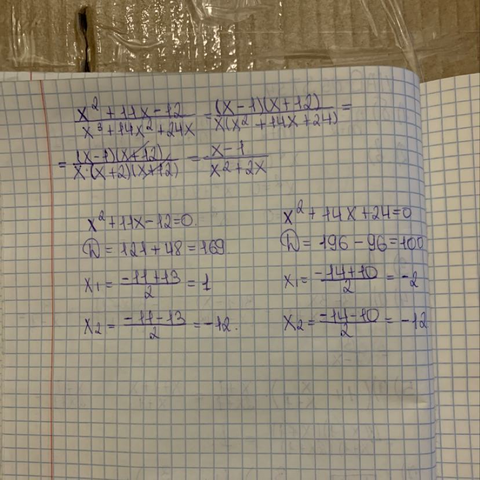 (x² + 11x - 12)/(x³ + 14x² + 24x) = ((x-1)(x+12))/(x(x² + 14x + 24)) =
= ((x-1)(x+12))/(x·(x+2)(x+12)) = (x-1)/(x²+2x)
x² + 11x - 12 = 0
D = 121 + 48 = 169
x₁ = (-11+13)/2 = 1
x₂ = (-11-13)/2 = -12.
x² + 14x + 24 = 0
D = 196 - 96 = 100
x₁ = (-14+10)/2 = -2
x₂ = (-14-10)/2 = -12